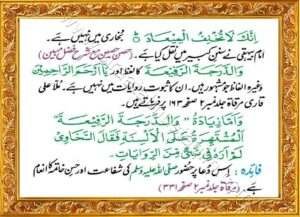 اِنَّكَ لَا تُخْلِفُ الْمِيْعَادَ ۵ بخاری میں نہیں ہے۔
امام بیہقی نے سنن کبیر میں نقل کیا ہے۔ (حصن حصین مع شرح فضل مبین)
وَالدَّرَجَةَ الرَّفِيْعَةَ کا لفظ اور يَا اَرْحَمَ الرَّاحِمِيْنَ
وغیرہ الفاظ جو مشہور ہیں۔ ان کا ثبوت روایات میں نہیں ہے۔ مُلّا علی
قاری مرقاۃ جلد نمبر ۲ صفحہ ۱۶۳ پر فرماتے ہیں۔
وَاَمَّا زِيَادَةُ " وَالدَّرَجَةَ الرَّفِيْعَةَ "
الْمُشْتَهِرَةُ عَلَى الْاَلْسِنَةِ فَقَالَ السَّخَاوِيُّ
لَمْ اَرَهُ فِيْ شَيْءٍ مِنَ الرِّوَايَاتِ۔
فائدہ: اس دُعا پر حضور صلی اللہ علیہ وسلم کی شفاعت اور حسن خاتمہ کا انعام
ہے۔ (مرقاۃ جلد نمبر ۲ صفحہ ۳۳۱)